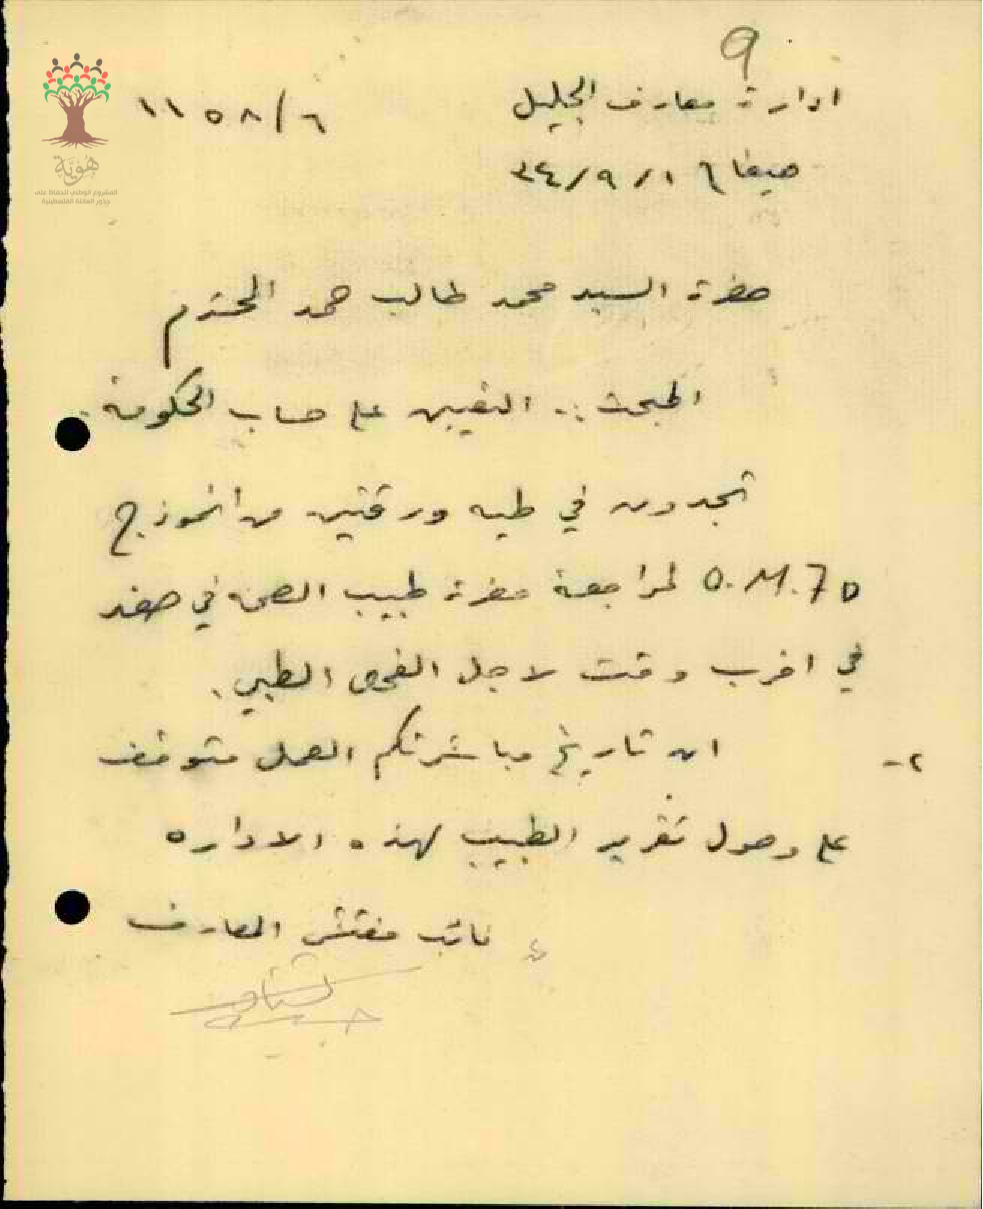 9
ادارة معارف الجليل
١١٥٨/٦
حيفا ٣٤/٩/١٦
هوية
المشروع الوطني للحفاظ على
جذور العائلة الفلسطينية
حضرة السيد محمد طالب حمد المحترم
المبحث :. التعيين على حساب الحكومة.
تجدون في طيه ورقتين من انموذج
O.M.7D لمراجعة حضرة طبيب الصحة في صفد
في اقرب وقت لاجل الفحص الطبي.
٢- ان تاريخ مباشرتكم العمل متوقف
على وصول تقرير الطبيب لهذه الاداره
نائب مفتش المعارف